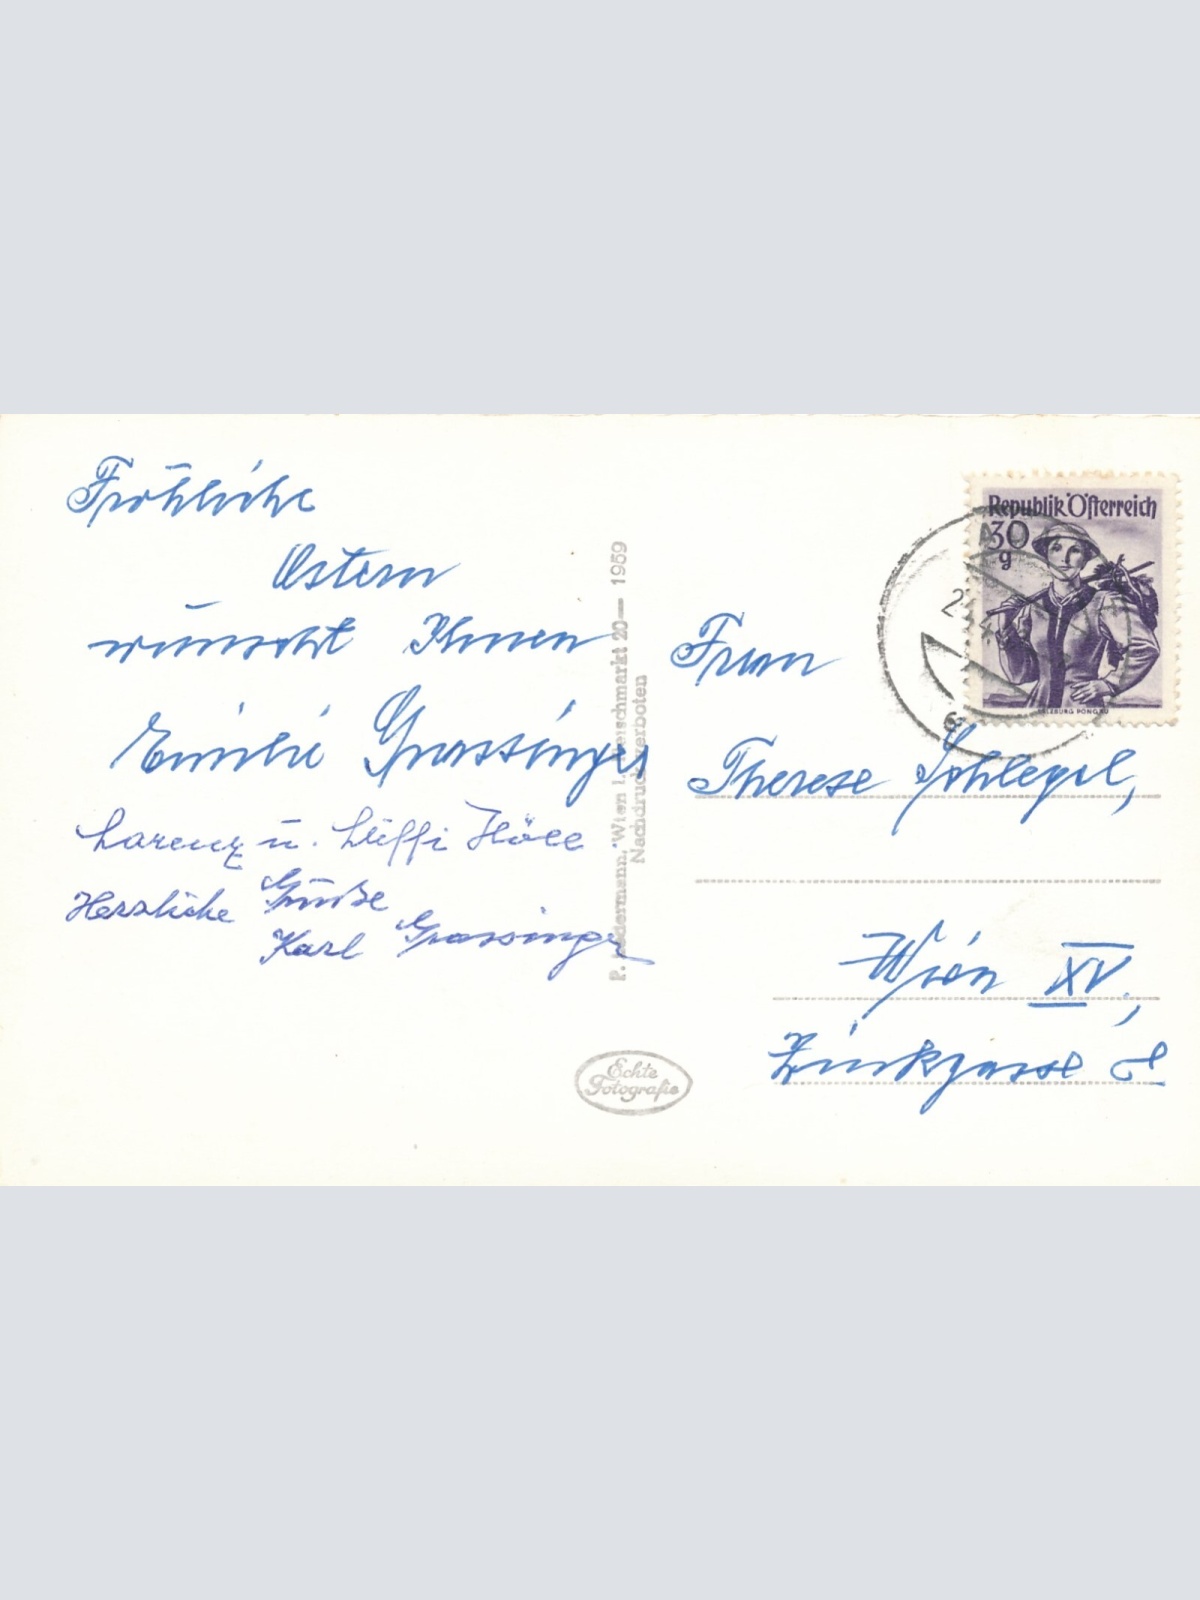 Fröhliche
Ostern
wünscht Ihnen
Emilie Grassinger
Lorenz u. Steffi Höll
Herzliche Grüße
Karl Grassinger
P. Ledermann, Wien I. Fleischmarkt 20— 1959
Nachdruck verboten
Echte
Fotografie
Republik Österreich
30
g
SALZBURG PONGAU
Frau
Therese Schlegel,
Wien XV.,
Zinkgasse